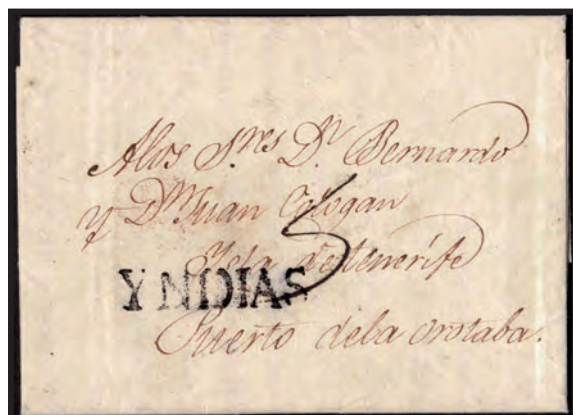 Alos S.res D.n Bernardo
y D.n Juan Cologan
5
Ysla de tenerife
YNDIAS
Puerto dela orotaba.